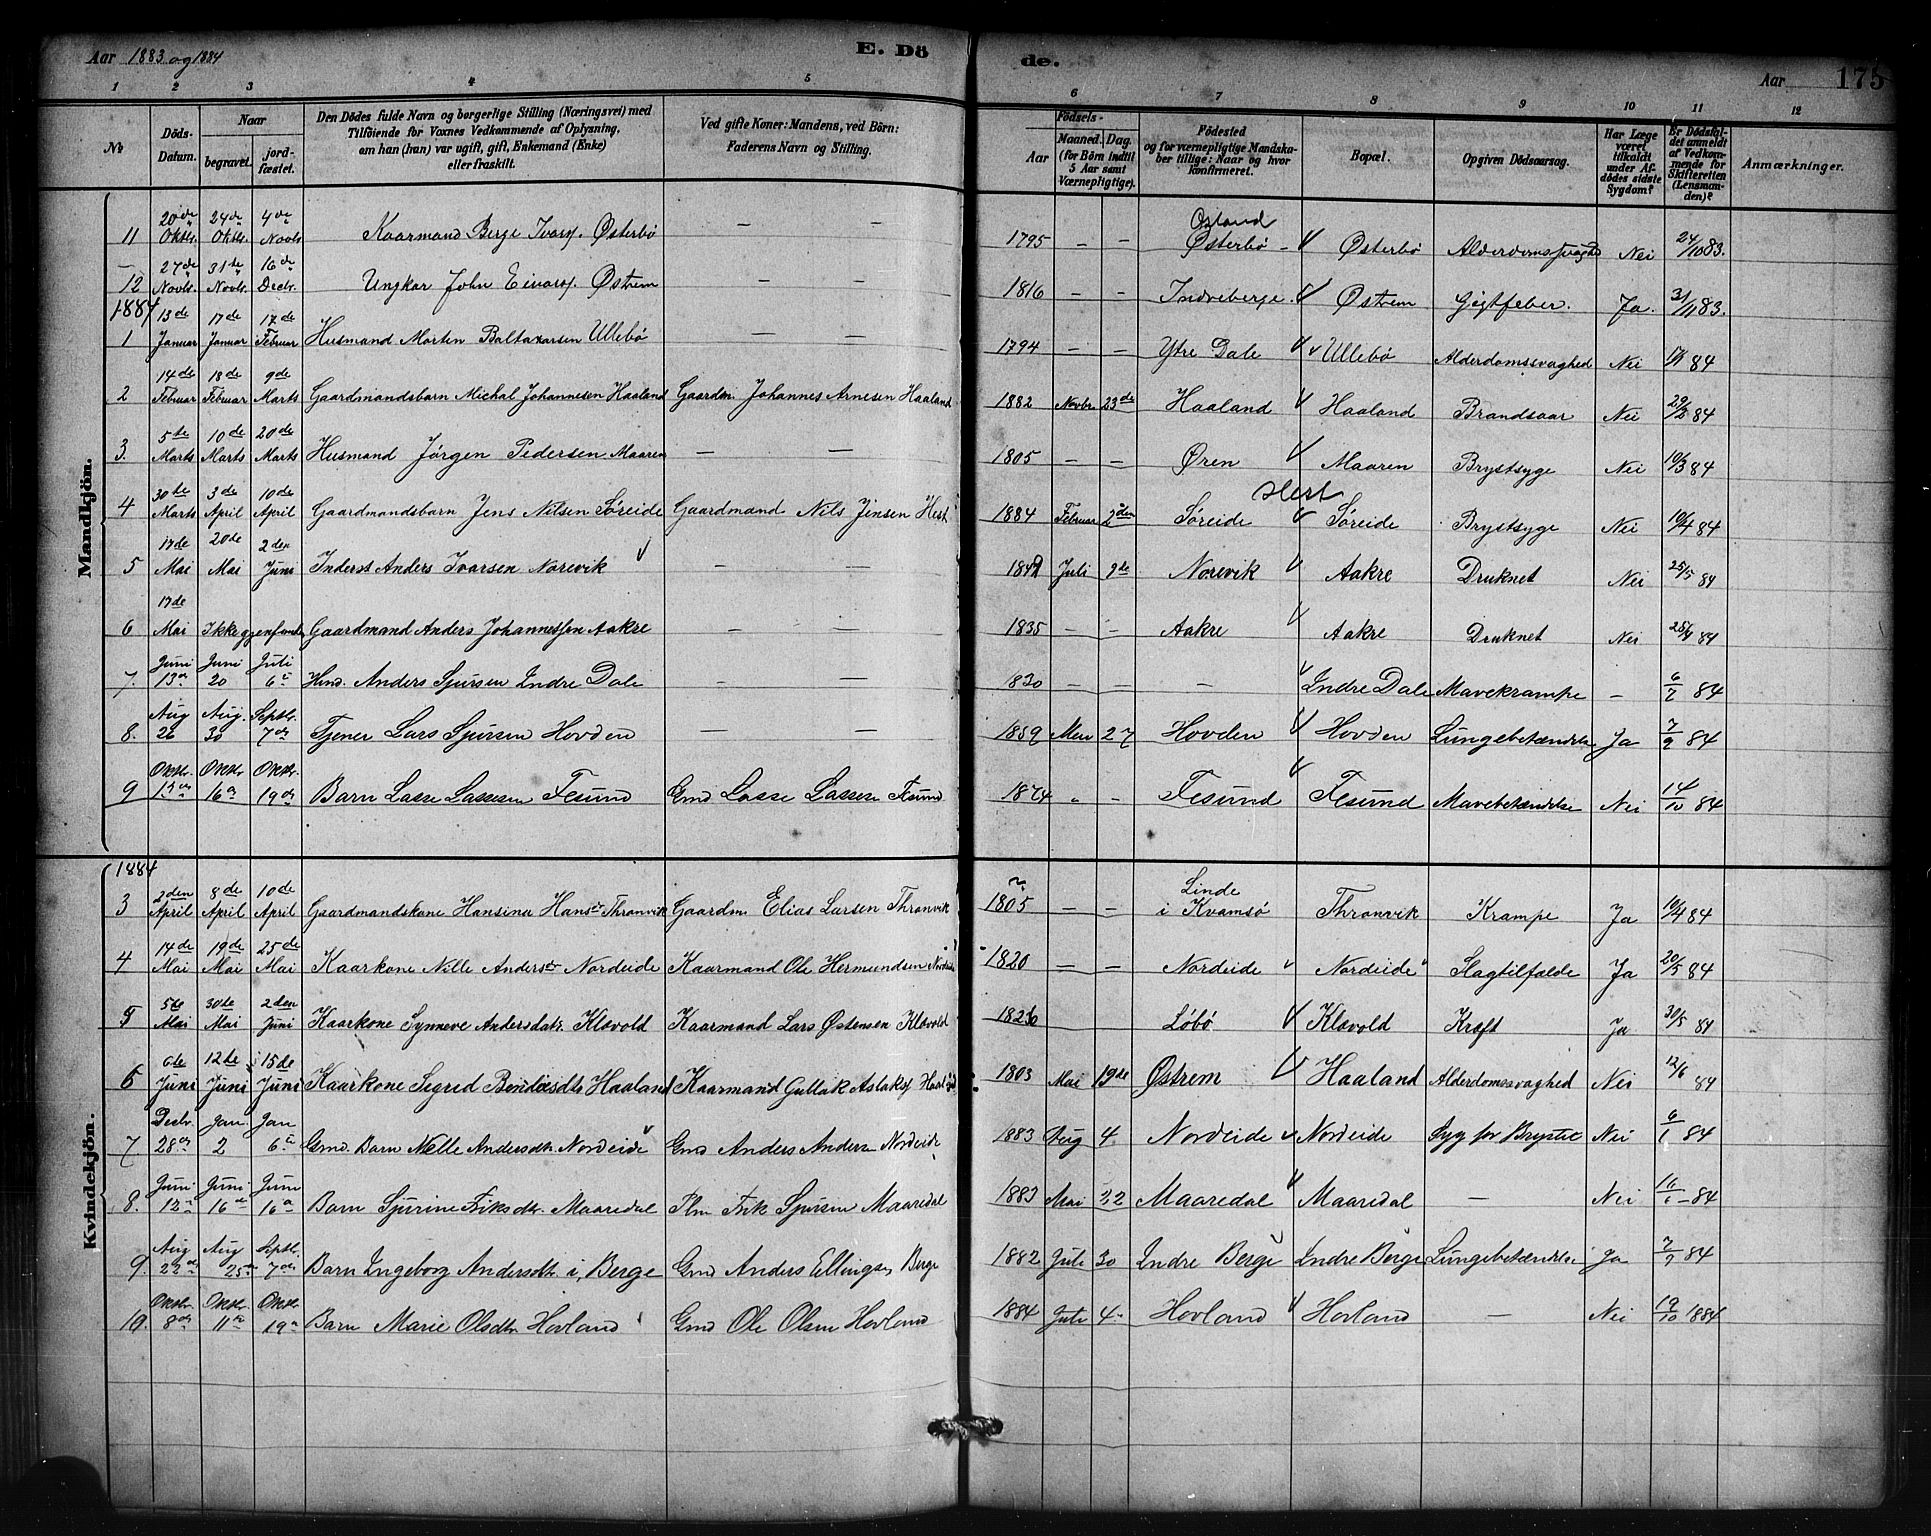 Aar 1883 og 1884
E. Dö
de.
Aar 175
1 2 3 4 5 6 7 8 9 10 11 12
No
Döds-Datum.
Naar
begravet.
jord-fæstet.
Den Dödes fulde Navn og borgerlige Stilling (Næringsvei) med
Tilföiende for Voxnes Vedkommende af Oplysning,
om han (hun) var ugift, gift, Enkemand (Enke)
eller fraskilt.
Ved gifte Koner: Mandens, ved Börn:
Faderens Navn og Stilling.
Födsels-
Aar
Maaned. Dag.
(for Börn indtil
5 Aar samt
Værnepligtige).
Födested
og for værnepligtige Mandska-
ber tillige: Naar og hvor
konfirmeret.
Bopæl.
Opgiven Dödsaarsag.
Har Læge
været
tilkaldt
under Af-
dödes sidste
Sygdom?
Er Dödsfal-
det anmeldt
af Vedkom-
mende for
Skifteretten
(Lensman-
den)?
Anmærkninger.
Mandkjön.
11 20de Oktbr. 24de Oktbr. 4de Novbr. Kaarmand Berge Ivars. Østerbø — — 1795 – – Østerbø Østerbø Alderdomssvaghed Nei 24/10 83.
12 27de Novbr. 31te Novbr. 16de Decbr. Ungkar John Eivars. Østrem — — 1816 – – Indreberge Østrem Gigtfeber. Ja. 31/11 83.
1884
1 13de Januar 17de Januar 17de Februar Husmand Morten Baltazarsen Ullebø — — 1794 – – Ytre Dale Ullebø Alderdomssvaghed Nei 84
2 14de Februar 18de Februar 9de Marts Gaardmandsbarn Michal Johannesen Haaland Gaardm. Johannes Arnesen Haaland 1882 Novbr. 23de Haaland Haaland Brandsaar Nei 29/2 84
3. 5te Marts 10de Marts 20de Marts Husmand Jørgen Pedersen Maaren — — 1805 – – Øren Maaren Brystsyge Nei 10/3 84
4 30te Marts 3de April 10de April Gaardmandsbarn Jens Nilsen Søreide Gaardmand Nils Jensen Hest 1884 Februar 2den Hest Søreide Søreide Brystsyge Nei 10/4 84
5 17de Mai 20de Mai 2den Juni Inderst Anders Ivarsen Norevik — — Juli 9de Norevik Aakre Druknet Nei 25/5 84
6 17de Mai Ikke gjenfunden Gaardmand Anders Johannessen Aakre — — 1835 – – Aakre Aakre Druknet Nei 84
7. Juni 13de Juni 20 Juli 6te Anders Sjursen Indre Dale — — 1830 – – – Indre Dale Mavekrampe – 84
8. Aug 26 Aug. 30 Septbr. 7de Tjener Lars Sjursen Hovden — — 1859 27 Hovden Hovden Lungebetændelse Ja 7/9 84
9 Oktbr. Oktbr. 16de Oktbr. 19de Barn Lasse Lassesen Fesund Gmd Lasse Lassesen Fesund 1874 – Fesund Fesund Mavebetændelse Nei 14/10 84
Kvindekjön.
1884
3 2den April 8de April 10de April Gaardmandskone Hansina Hansdr Thronvik Gaardm. Elias Larsen Thronvik 1805 – – Linde i Kvamsø Thronvik Krampe Ja 10/4 84
4 14de Mai 19de Mai 25de Mai Kaarkone Nille Andersdr Nordeide Kaarmand Ole Hermundsen Nordeide 1820 – – Nordeide Nordeide Slagtilfælde Ja 20/5 84
5 5te Mai 30te Mai 2den Juni Kaarkone Synneve Andersdatr. Klævold Kaarmand Lars Østensen Klævold 1826 Løbø Klævold Kræft Ja 30/5 84
6 6te Juni 12te Juni 15de Juni Kaarkone Sigrid Haaland Kaarmand Gullak Aslaks. Haaland 1803 Mai 19de Østrem Haaland Alderdomssvaghed Nei 12/6 84
7 Decbr. 28de Jan. 2 Jan 6te Gmd. Barn Nelle Andersdtr. Nordeide Gmd Anders Anders. Nordeide 1883 Aug 4 Nordeide Nordeide Syg for Brystet Nei 6/1 84
8. Juni 12te Juni 16de Juni 16de Barn Sjurine Eriksdtr. Maaredal Erik Sjursen Maaredal 1883 Mai 22 Maaredal Maaredal — Nei 16/6 – 84
9. Aug 22de Aug 25de Septbr. 7de Barn Ingeborg Andersdtr. i, Berge Gmd Anders Ellingsen Berge 1882 Juli 30 Indre Berge Indre Berge Lungebetændelse Ja 7/9 84
10. Oktbr. 8de Oktbr. 11te Oktbr. 19de Barn Marie Olsdtr. Hovland Gmd Ole Olsen Hovland 1884 Juli 4 Hovland Hovland — Nei 19/10 1884